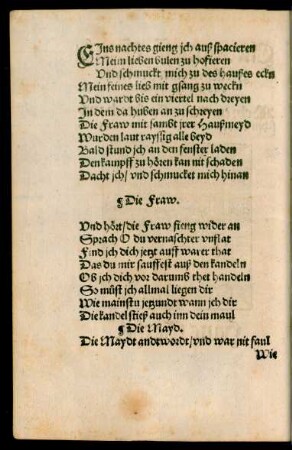 Eins nachtes gieng jch auß spacieren
Meim lieben bulen zu hofieren
Vnd schmuckt mich zu des hauses eckn
Mein feines lieb mit gsang zu weckn
Vnd wardt bis ein viertel nach dreyen
In dem da huben an zu schreyen
Die Fraw mit sambt jrer Haußmeyd
Wurden laut rayssig alle beyd
Bald stund jch an den fenster laden
Den kampff zu hören kan nit schaden
Dacht jch/ vnd schmucket mich hinan
¶ Die Fraw.
Vnd hört/ die Fraw fieng wider an
Sprach O du vernaschter vnflat
Find jch dich jetzt auff warer that
Das du mir sauffest auß den kandeln
Ob jch dich vor darumb thet handeln
So müst jch allmal liegen dir
Wie mainstu jetzundt wann jch dir
Die kandel stieß auch inn dein maul
¶ Die Mayd.
Die Maydt andtwordt/ vnd war nit faul
Wie